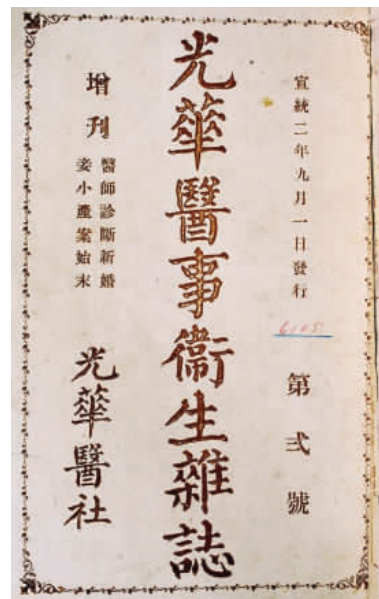 宣統二年九月一日發行
6105
第弍號
光華醫事衞生雜誌
增刊
醫師診斷新婚
妾小產案始末
光華醫社